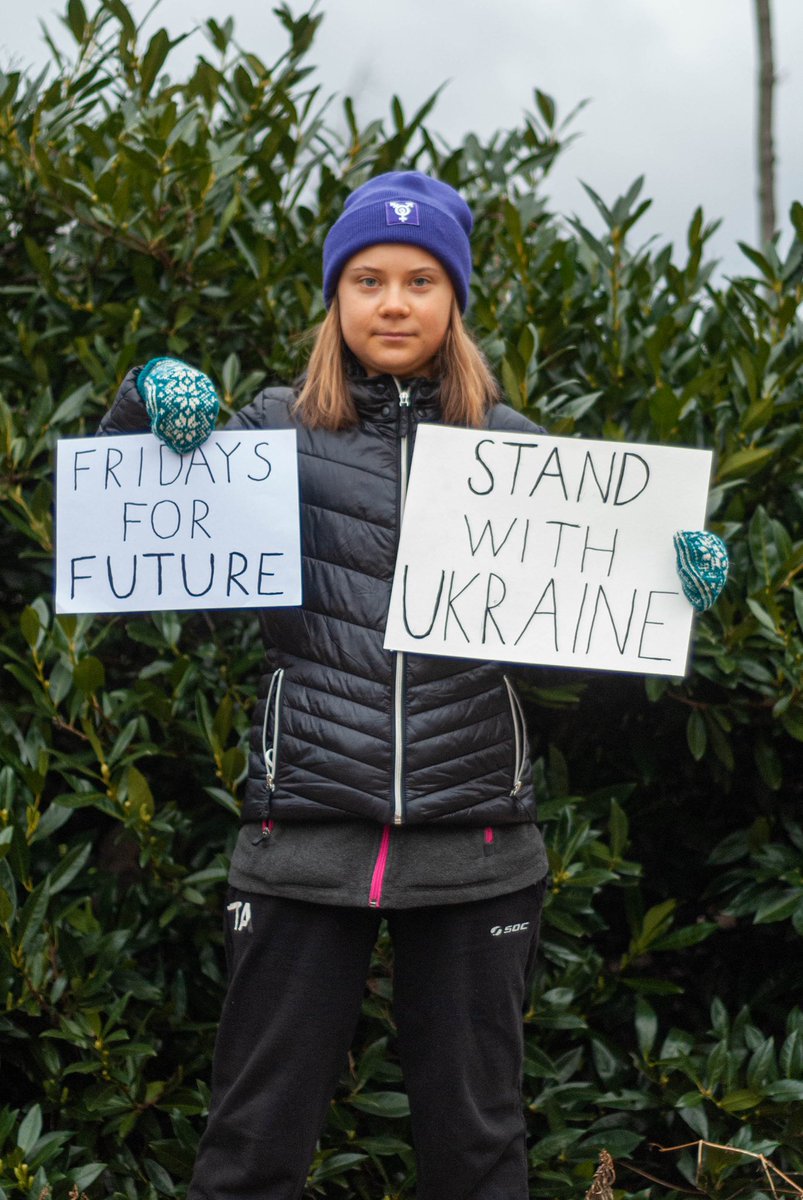 FRIDAYS
FOR
FUTURE
STAND
WITH
UKRAINE
TA
SOC